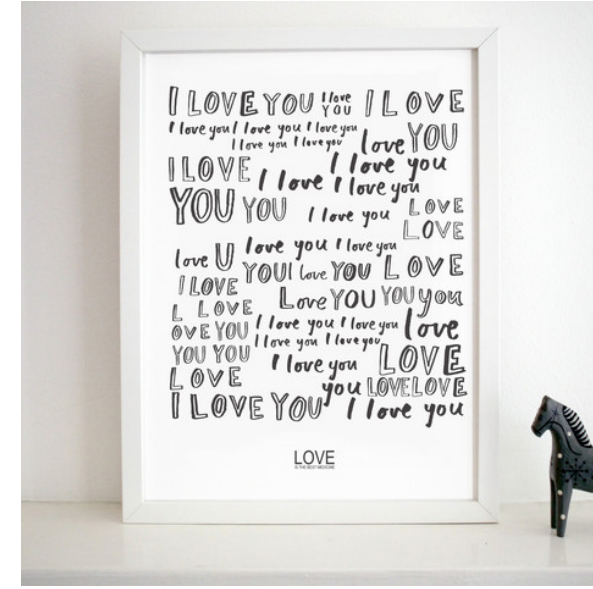 I LOVE YOU I love YOU I LOVE
I love you I love you I love you
I love you I love you love YOU
I LOVE I love you
I love I love you
YOU YOU I love you LOVE
LOVE
love U love you I love you
YOU I love YOU LOVE
I LOVE
L LOVE Love YOU YOU you
OVE YOU I love you I love you love
YOU YOU I love you I love you
LOVE I love you LOVE
you LOVE LOVE
I LOVE YOU I love you
LOVE
IS THE BEST MEDICINE